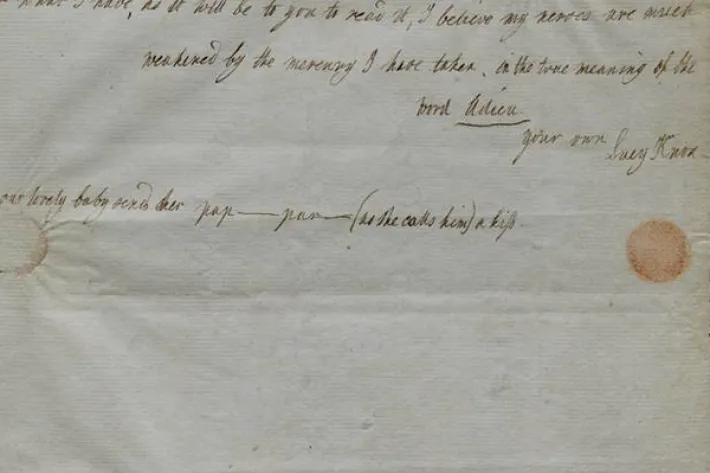 what I have, as it will be to you to read it, I believe my nerves are much
weakened by the mercury I have taken. in the true meaning of the
word Adieu
your own Lucy Knox
our lovely baby sends her pap— par— (as she calls him) a kiss.